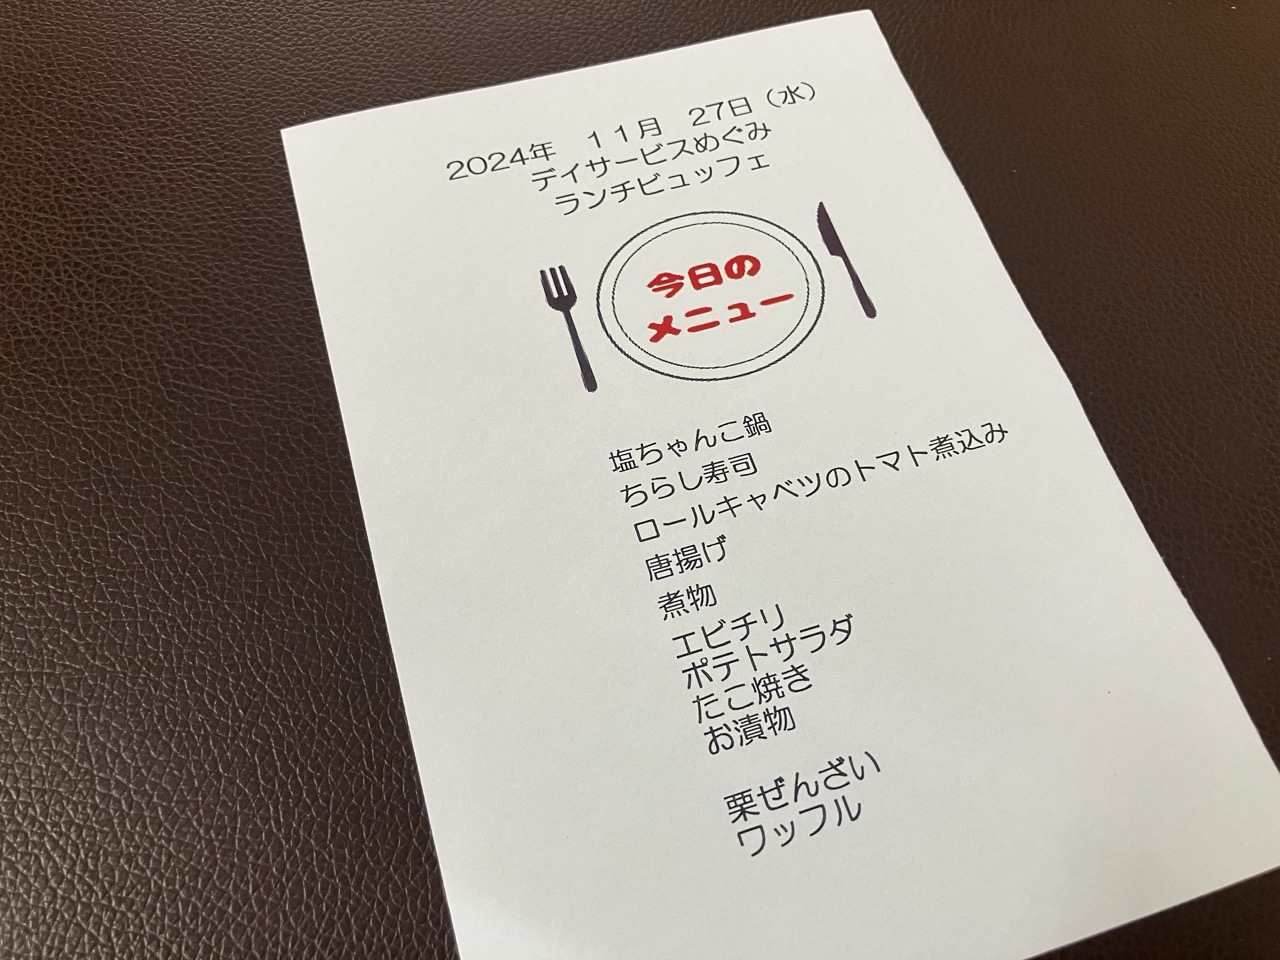 2024年　１１月　27日（水）
デイサービスめぐみ
ランチビュッフェ
今日の
メニュー
塩ちゃんこ鍋
ちらし寿司
ロールキャベツのトマト煮込み
唐揚げ
煮物
エビチリ
ポテトサラダ
たこ焼き
お漬物
栗ぜんざい
ワッフル